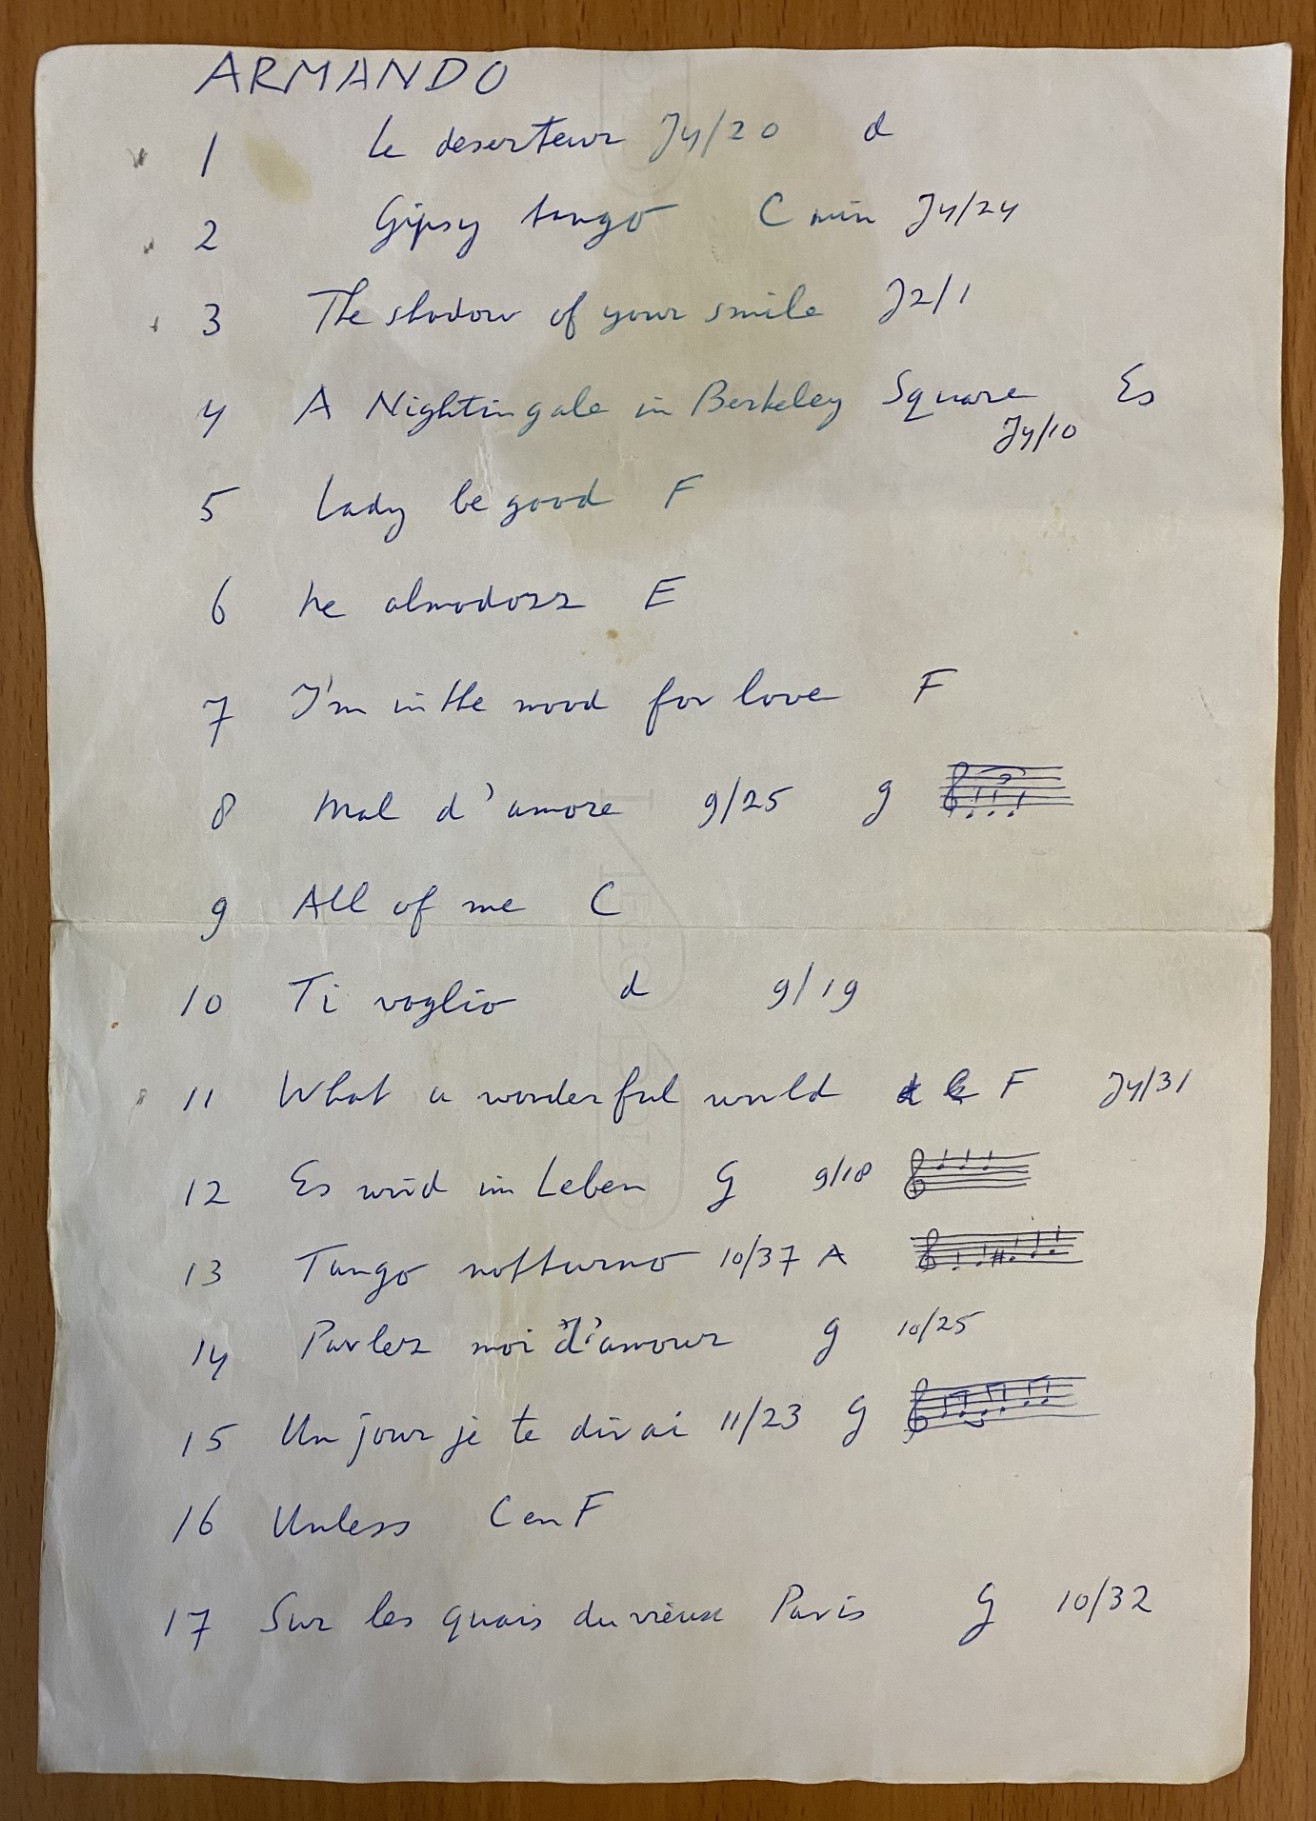 ARMANDO
1 Le deserteur J4/20 d
2 Gipsy tango C min J4/24
3 The shadow of your smile J2/1
4 A Nightingale in Berkeley Square Es
J4/10
5 Lady be good F
6 he almodozz E
7 I'm in the mood for love F
8 Mal d'amore 9/25 g
9 All of me C
10 Ti voglio d 9/19
11 What a wonderful world F J4/31
12 Es wird im Leben G 9/18
13 Tango notturno 10/37 A
14 Parlez moi d'amour g 10/25
15 Un jour je te dirai 11/23 G
16 Unless C en F
17 Sur les quais du vieux Paris G 10/32